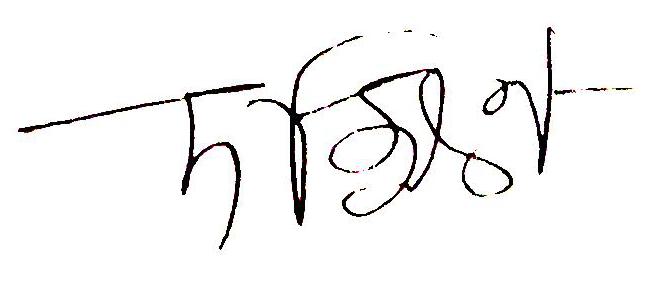 দক্ষিণ